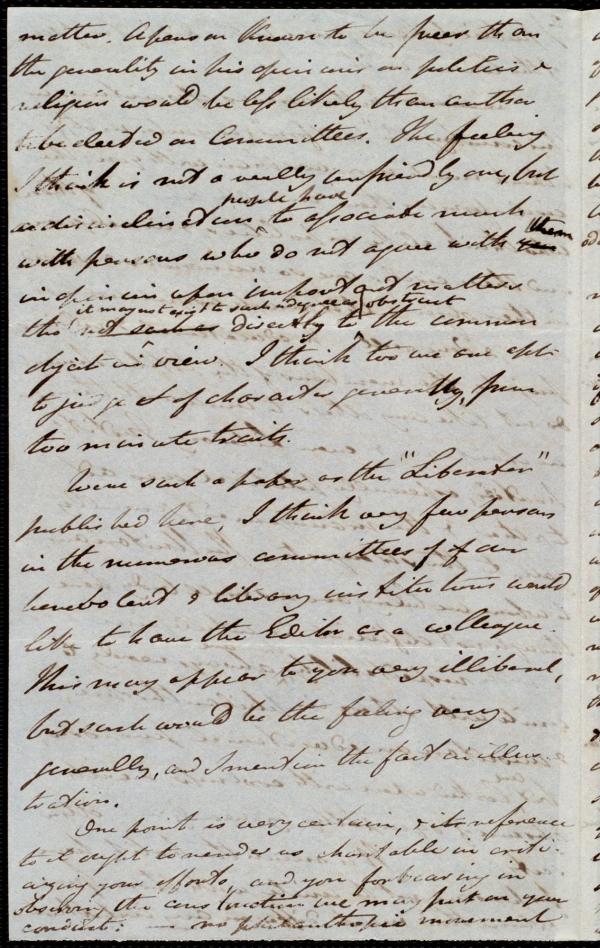 matter. A person known to be freer than
the generality in his opinions on politics &
religion would be less likely than another
to be elected on Committees. The feeling
I think is not a really unfriendly one, but
a disinclination people have to associate much
with persons who do not agree with them
in opinion upon important matters
tho' it may not exist to such a degree as obstruct directly to the common
object in view. I think too we are apt
to judge of character generally, from
too minute traits.
Were such a paper as the "Liberator"
published here, I think very few persons
in the numerous committees of our
benevolent & literary institutions would
like to have the Editor as a colleague.
This may appear to you very illiberal,
but such would be the feeling very
generally, and I mention the fact in illus-
tration.
One point is very certain, & its reference
to it ought to render us charitable in criti-
cizing your efforts, and you forbearing in
observing the construction we may put on your
conduct: — no philanthropic movement